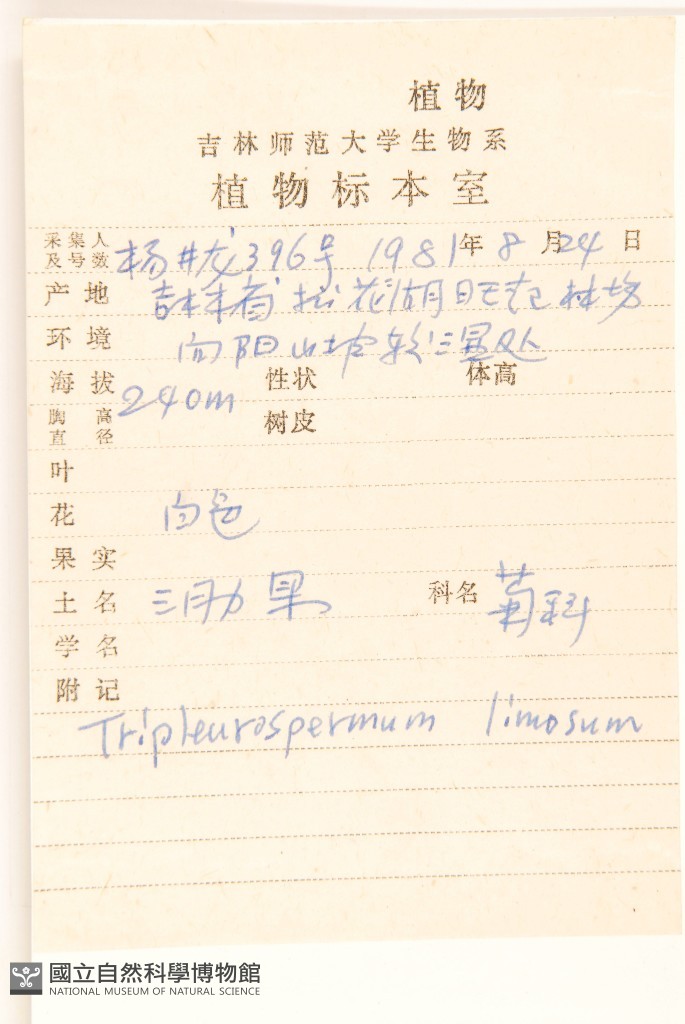 植物
吉林师范大学生物系
植物标本室
采集人及号数 杨井龙396号 1981年8月24日
产地 吉林省松花湖 林场
环境 向阳山坡较湿处
海拔 240m 性状 体高
胸高直径 树皮
叶
花 白色
果实
土名 三肋果 科名 菊科
学名
附记
Tripleurospermum limosum
國立自然科學博物館
NATIONAL MUSEUM OF NATURAL SCIENCE